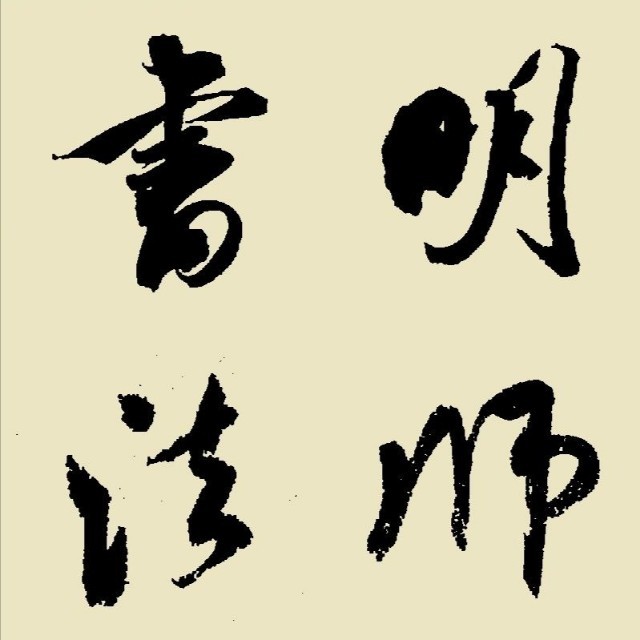 明师
書法